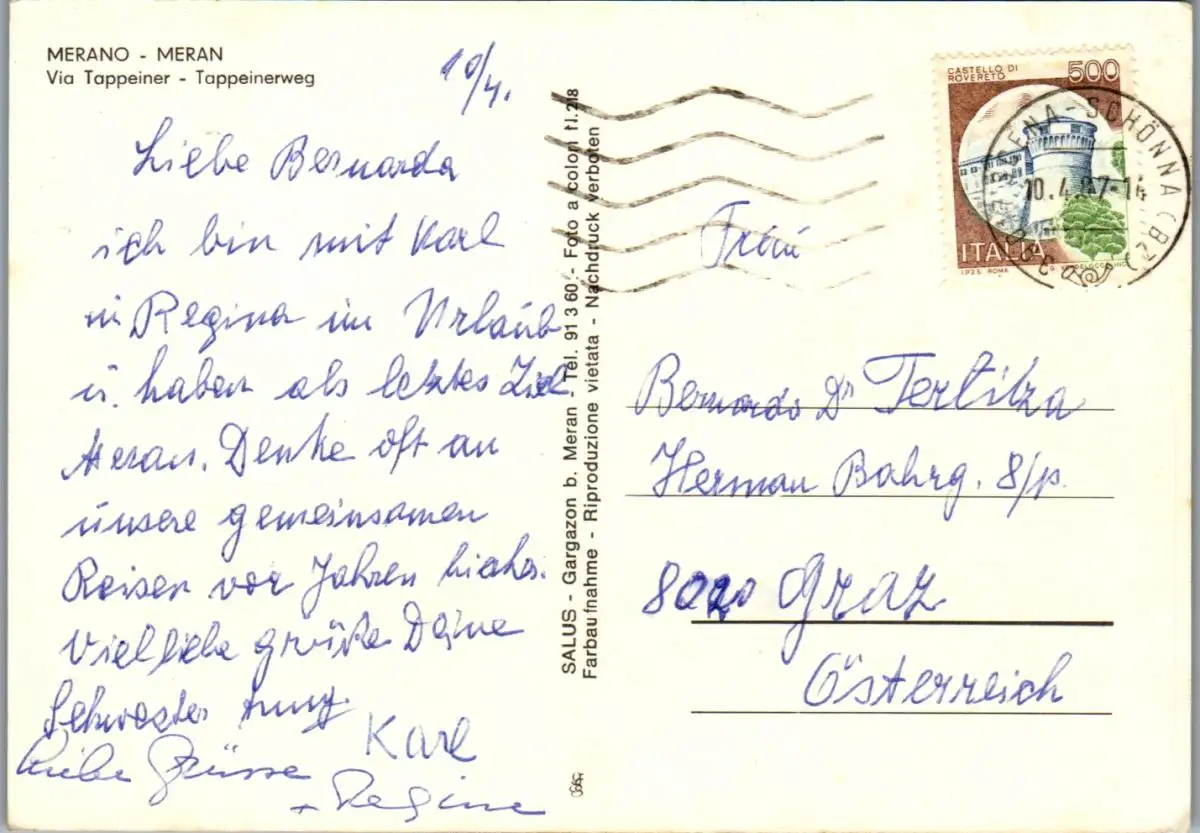 MERANO - MERAN
Via Tappeiner - Tappeinerweg
10/4.
Liebe Bernarda
ich bin mit Karl
u Regina im Urlaub
u. haben als letztes Ziel
Meran. Denke oft an
unsere gemeinsamen
Reisen vor Jahren hieher.
Viel liebe Grüße Deine
Schwester
Karl
Liebe Grüsse
+ Regina
SALUS - Gargazon b. Meran - Tel. 91 3 60 - Foto a colori N. 218
Farbaufnahme - Riproduzione vietata - Nachdruck verboten
CASTELLO DI
ROVERETO
500
ITALIA
I.P.Z.S. ROMA
SCENA-SCHÖNNA (BZ)
10.4.87-14
Frau
Bernarda Dr Tertilza
Herman Bahrg. 8/p.
8020 Graz
Österreich